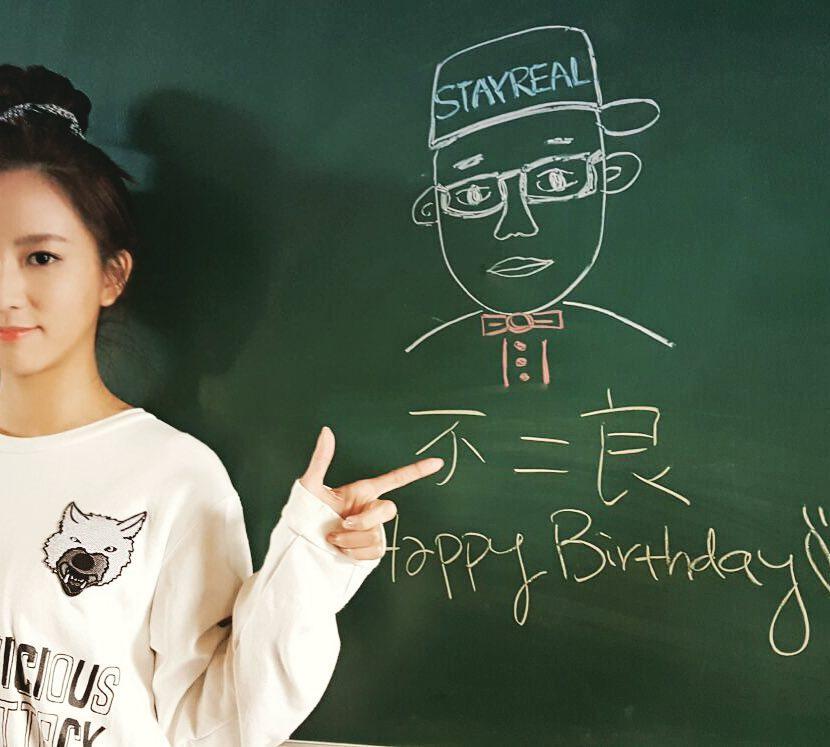 STAYREAL
不二良
Happy Birthday
ICIOUS
TTACK